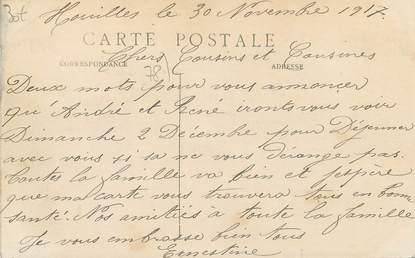 30f
Houilles le 30 Novembre 1917.
CARTE POSTALE
Chers Cousins et Cousines
CORRESPONDANCE
ADRESSE
78
Deux mots pour vous annoncer
qu'André et René iront vous voir
Dimanche 2 Décembre pour Déjeuner
avec vous si sa ne vous dérange pas.
Toutes la famille va bien et j'espère
que ma carte vous trouvera tous en bonne
santé. Nos amitiés à toute la famille
Je vous embrasse bien tous
Ernestine